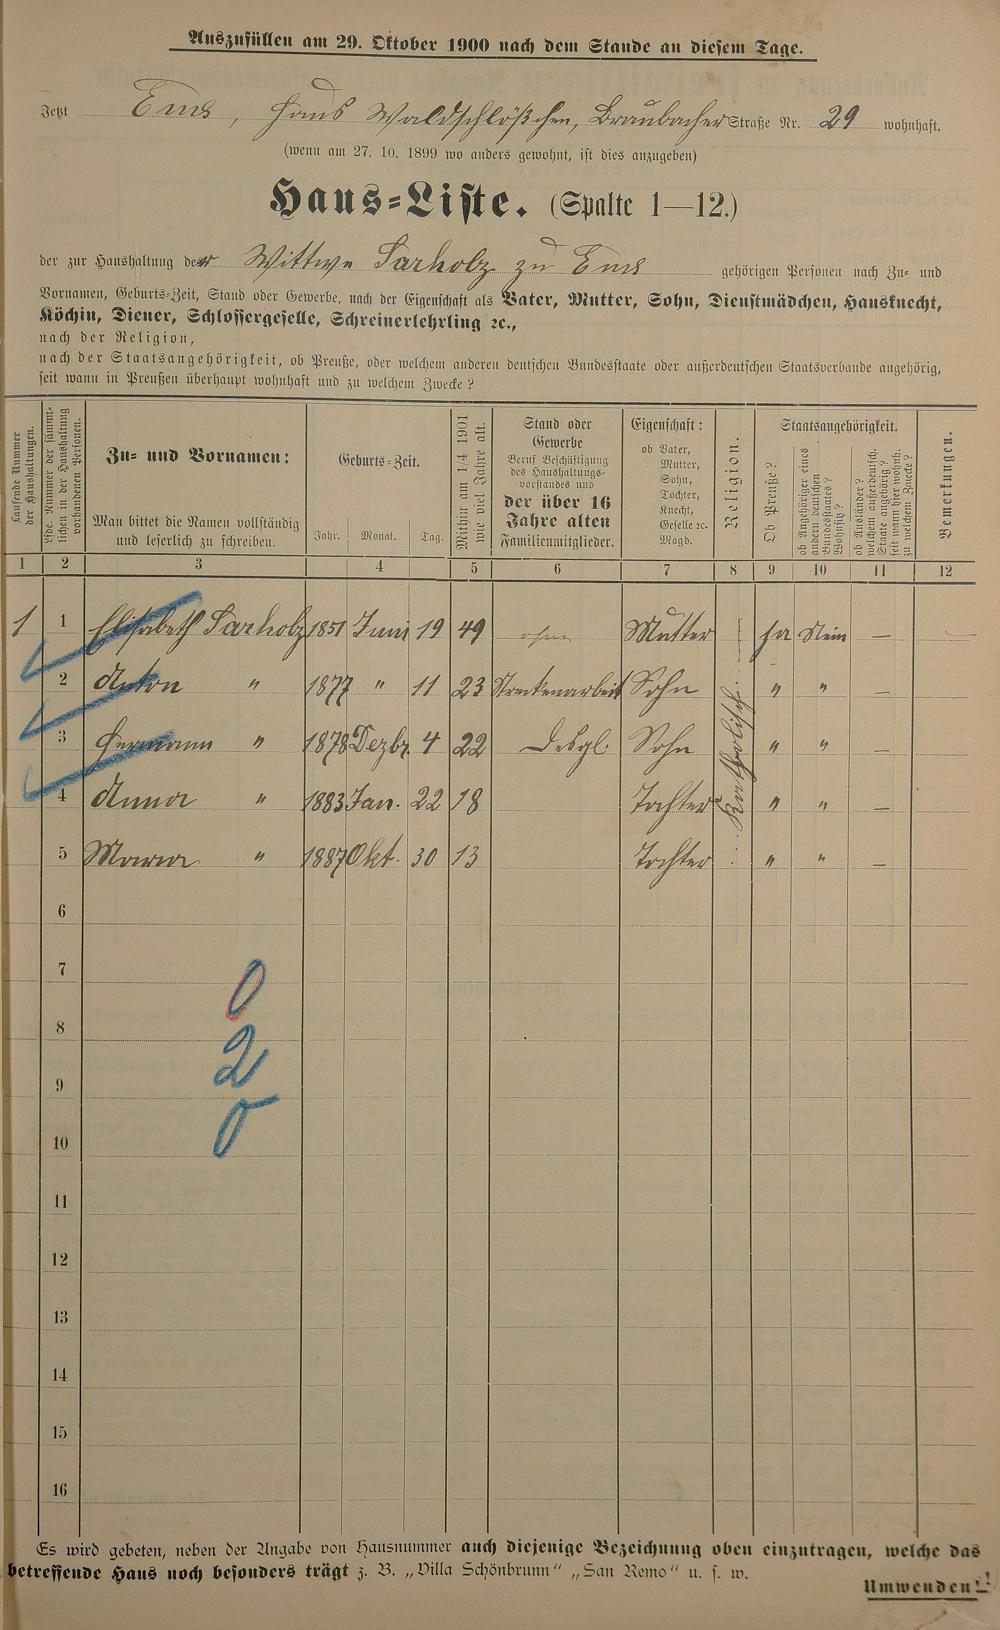 Auszufüllen am 29. Oktober 1900 nach dem Stande an diesem Tage.
Jetzt Ems, Haus Waldschlößchen, Braubacher Straße Nr. 29 wohnhaft.
(wenn am 27. 10. 1899 wo anders gewohnt, ist dies anzugeben)
Haus-Liste. (Spalte 1—12.)
der zur Haushaltung der Wittwe Sarholz zu Ems gehörigen Personen nach Zu- und
Vornamen, Geburts-Zeit, Stand oder Gewerbe, nach der Eigenschaft als Vater, Mutter, Sohn, Dienstmädchen, Hausknecht,
Köchin, Diener, Schlossergeselle, Schreinerlehrling ꝛc.,
nach der Religion,
nach der Staatsangehörigkeit, ob Preuße, oder welchem anderen deutschen Bundesstaate oder außerdeutschen Staatsverbande angehörig,
seit wann in Preußen überhaupt wohnhaft und zu welchem Zwecke?
Laufende Nummer
der Haushaltungen.
Lfde. Nummer der sämmt-
lichen in der Haushaltung
vorhandenen Personen.
Zu- und Vornamen:
Man bittet die Namen vollständig
und leserlich zu schreiben.
Geburts-Zeit.
Jahr. Monat. Tag.
Mithin am 1/4 1901
wie viel Jahre alt.
Stand oder
Gewerbe
Beruf Beschäftigung
des Haushaltungs-
vorstandes und
der über 16
Jahre alten
Familienmitglieder.
Eigenschaft:
ob Vater,
Mutter,
Sohn,
Tochter,
Knecht,
Geselle ꝛc.
Magd.
Religion.
Staatsangehörigkeit.
Ob Preuße?
ob Angehöriger eines
andern deutschen
Bundesstaates?
Wohnsitz?
ob Ausländer?
welchem außerdeutsch.
Staate angehörig?
seit wann hier wohnh.
zu welchem Zwecke?
Bemerkungen.
1 2 3 4 5 6 7 8 9 10 11 12
1 1 Elisabeth Sarholz 1851 Juni 19 49 ohne Mutter Katholisch ja Nein —
2 Anton " 1877 " 11 23 Streckenarbeit Sohn " " —
3 Hermann " 1878 Dezbr. 4 22 Desgl. Sohn " " —
4 Anna " 1883 Jan. 22 18 Tochter " " —
5 Maria " 1887 Okt. 30 13 Tochter " " —
6
7
0
8
2
9
0
10
11
12
13
14
15
16
Es wird gebeten, neben der Angabe von Hausnummer auch diejenige Bezeichnung oben einzutragen, welche das
betreffende Haus noch besonders trägt z. B. „Villa Schönbrunn" „San Remo" u. s. w.
Umwenden!